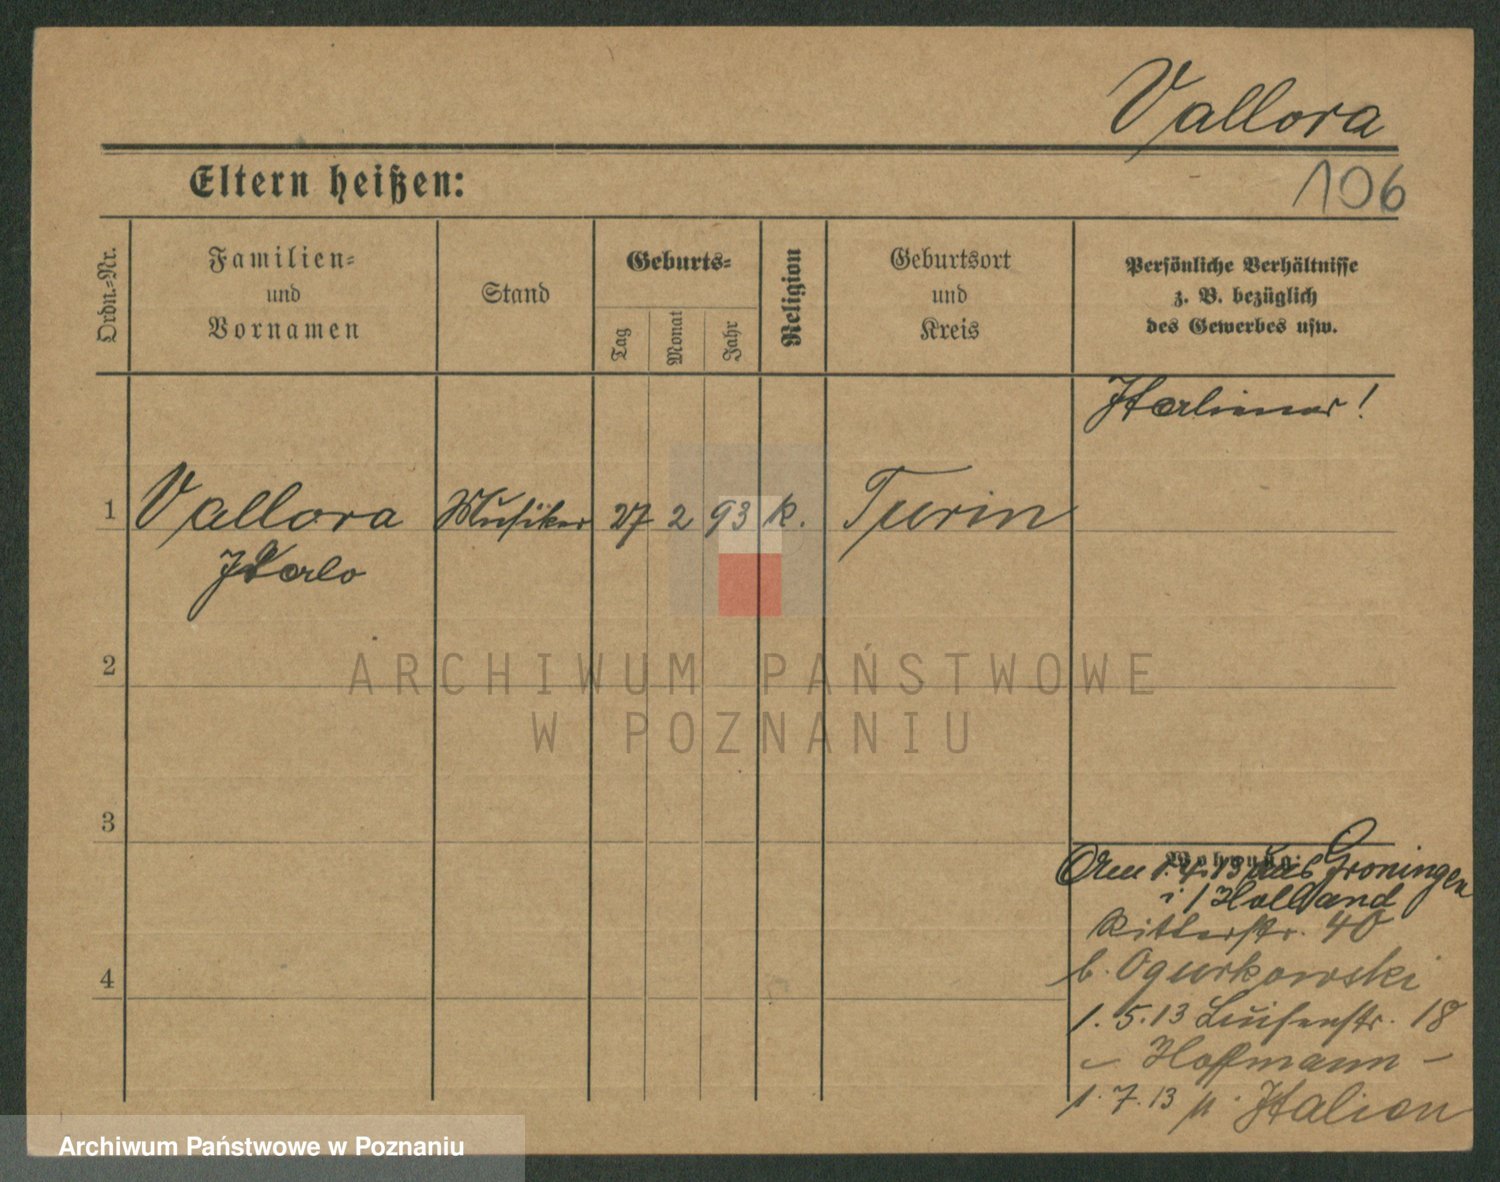 Vallora
Eltern heißen:
106
Ordn.=Nr.
Familien=
und
Vornamen
Stand
Geburts=
Tag
Monat
Jahr
Religion
Geburtsort
und
Kreis
Persönliche Verhältnisse
z. B. bezüglich
des Gewerbes usw.
Italiener!
1
Vallora
Musiker
27
2
93
k.
Turin
Italo
2
ARCHIWUM PAŃSTWOWE
W POZNANIU
3
Wohnung:
Am 1.4.13 aus Groningen
i/Holland
Ritterstr. 40
b. Ogurkowski
4
1.5.13 Luisenstr. 18
Hoffmann –
1.7.13 n. Italien
Archiwum Państwowe w Poznaniu